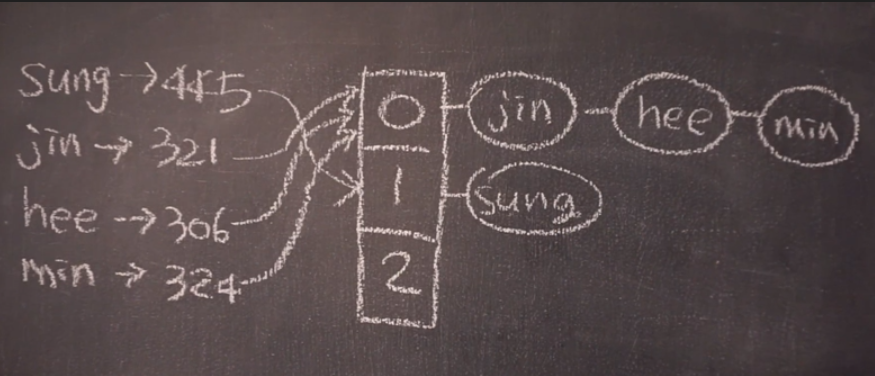 sung → 445
jin → 321
hee → 306
min → 324
0 jin hee min
1 sung
2